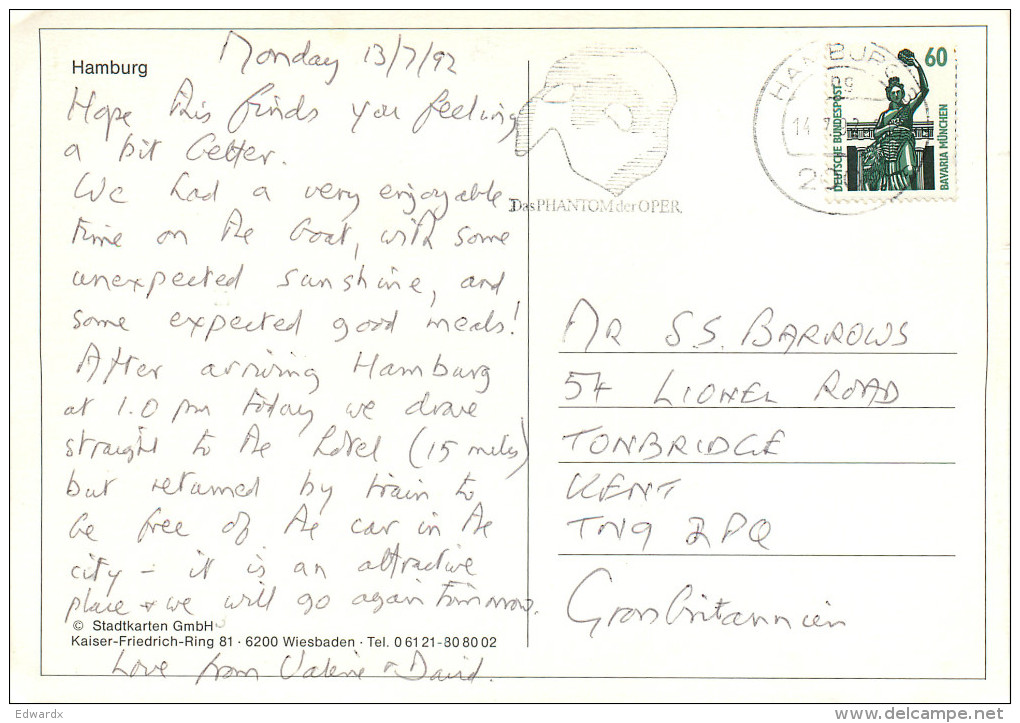 Hamburg
Monday 13/7/92
Hope this finds you feeling
a bit better.
We had a very enjoyable
time on the boat, with some
unexpected sunshine, and
some expected good meals!
After arriving Hamburg
at 1.0 pm today we drove
straight to the hotel (15 miles)
but returned by train to
be free of the car in the
city – it is an attractive
place & we will go again tomorrow.
© Stadtkarten GmbH
Kaiser-Friedrich-Ring 81 · 6200 Wiesbaden · Tel. 0 61 21-80 80 02
Love from Valerie & David.
Das PHANTOM der OPER.
HAMBURG
14
60
DEUTSCHE BUNDESPOST
BAVARIA MÜNCHEN
MR S.S. BARROWS
54 LIONEL ROAD
TONBRIDGE
KENT
TN9 2PQ
Grossbritannien
Edwardx
www.delcampe.net